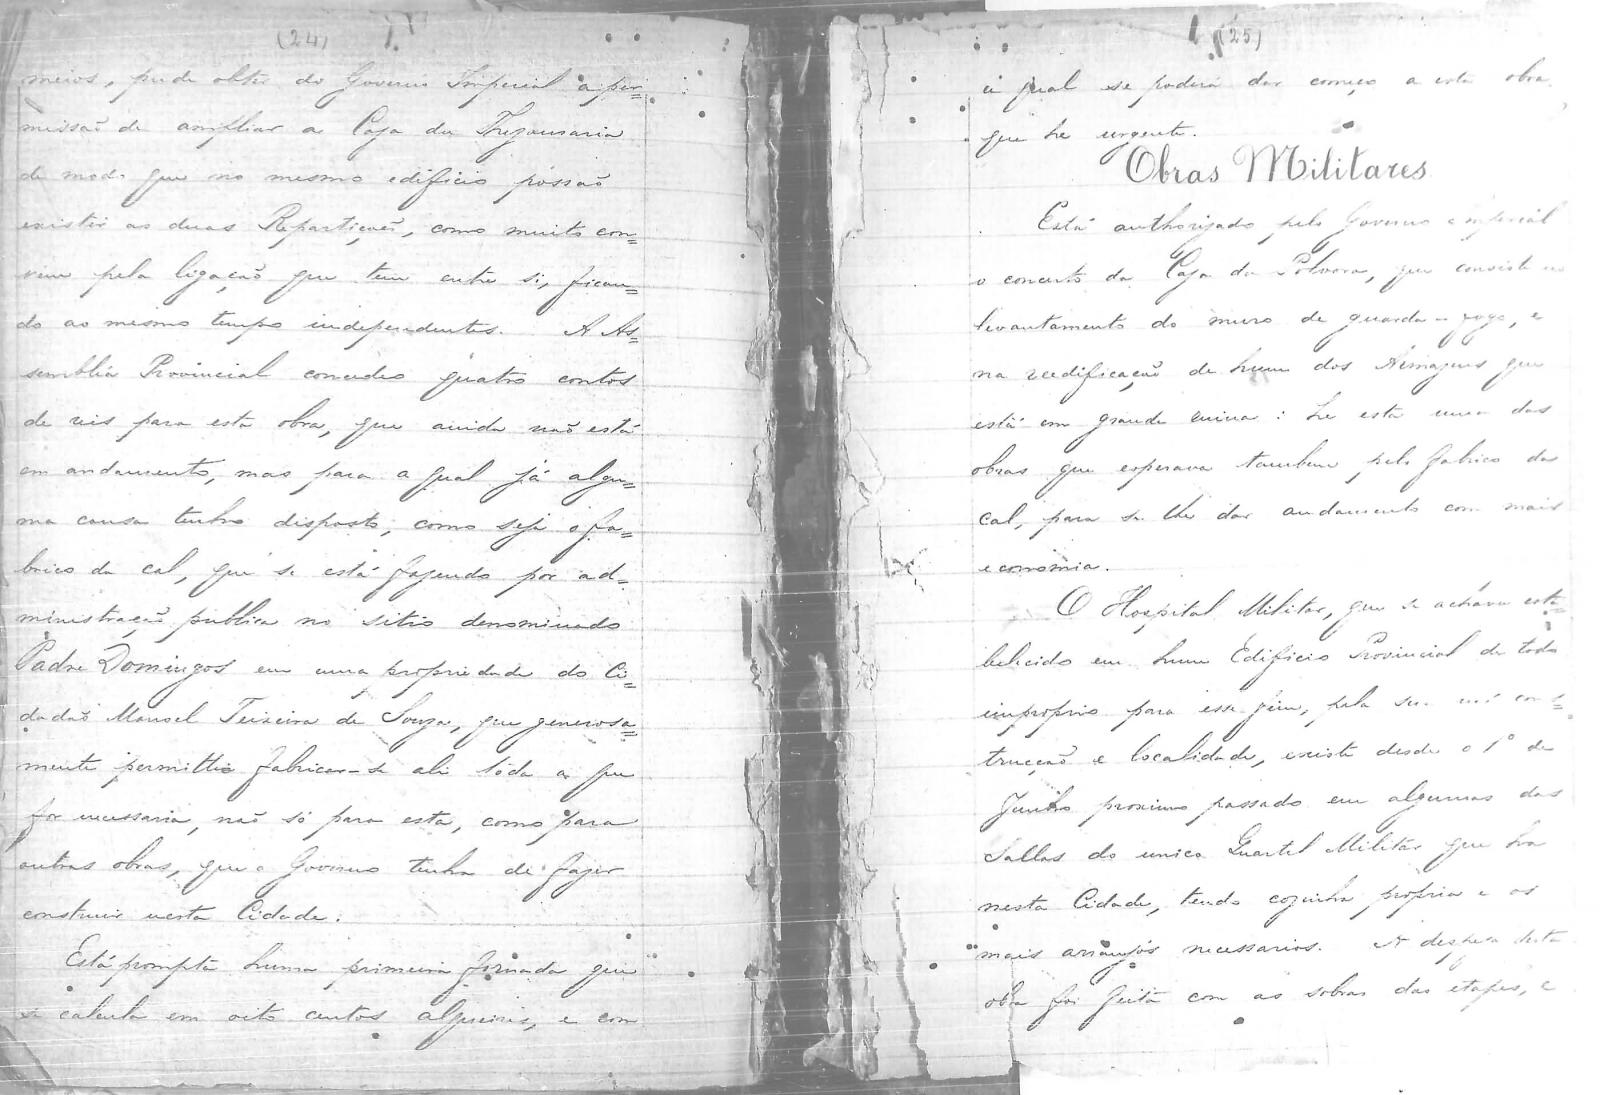 (24)
meios, pude obter do Governo Imperial a per=
missaõ de ampliar a Caza da Thezouraria
de modo que no mesmo edificio possaõ
existir as duas Repartiçoẽs, como muito con=
vem pela ligaçaõ que tem entre si, fican=
do ao mesmo tempo independentes. A As=
sembléa Provincial concedeo quatro contos
de reis para esta obra, que ainda naõ está
em andamento, mas para a qual já algu=
ma cousa tenho disposto, como seja o fa=
brico da cal, que se está fazendo por ad=
ministraçaõ publica no sitio denominado
Padre Domingos em uma propriedade do Ci=
dadaõ Manoel Teixeira de Souza, que generosa=
mente permittio fabricar-se ali tóda a que
for necessaria, naõ só para esta, como para
outras obras, que o Governo tenha de fazer
construir nesta Cidade.
Está prompta huma primeira fornada que
se calcula em oito centos alqueires, e com
(25)
a qual se poderá dar começo a esta obra
que he urgente.
Obras Militares
Está authorizado pelo Governo imperial
o concerto da Caza da Polvora, que consiste no
levantamento do muro de guarda-fogo, e
na reedificaçaõ de hum dos Armazens que
está em grande ruina: he esta uma das
obras que esperava tambem pelo fabrico da
cal, para se lhe dar andamento com mais
economia.
O Hospital Militar, que se achava esta=
belecido em hum Edificio Provincial de todo
improprio para esse fim, pela sua má cons=
trucçaõ e localidade, existe desde o 1º de
Junho proximo passado em algumas das
Sallas do unico Quartel Militar que ha
nesta Cidade, tendo cozinha propria e os
mais arranjos necessarios. A despeza desta
obra foi feita com as sobras das etapes, e